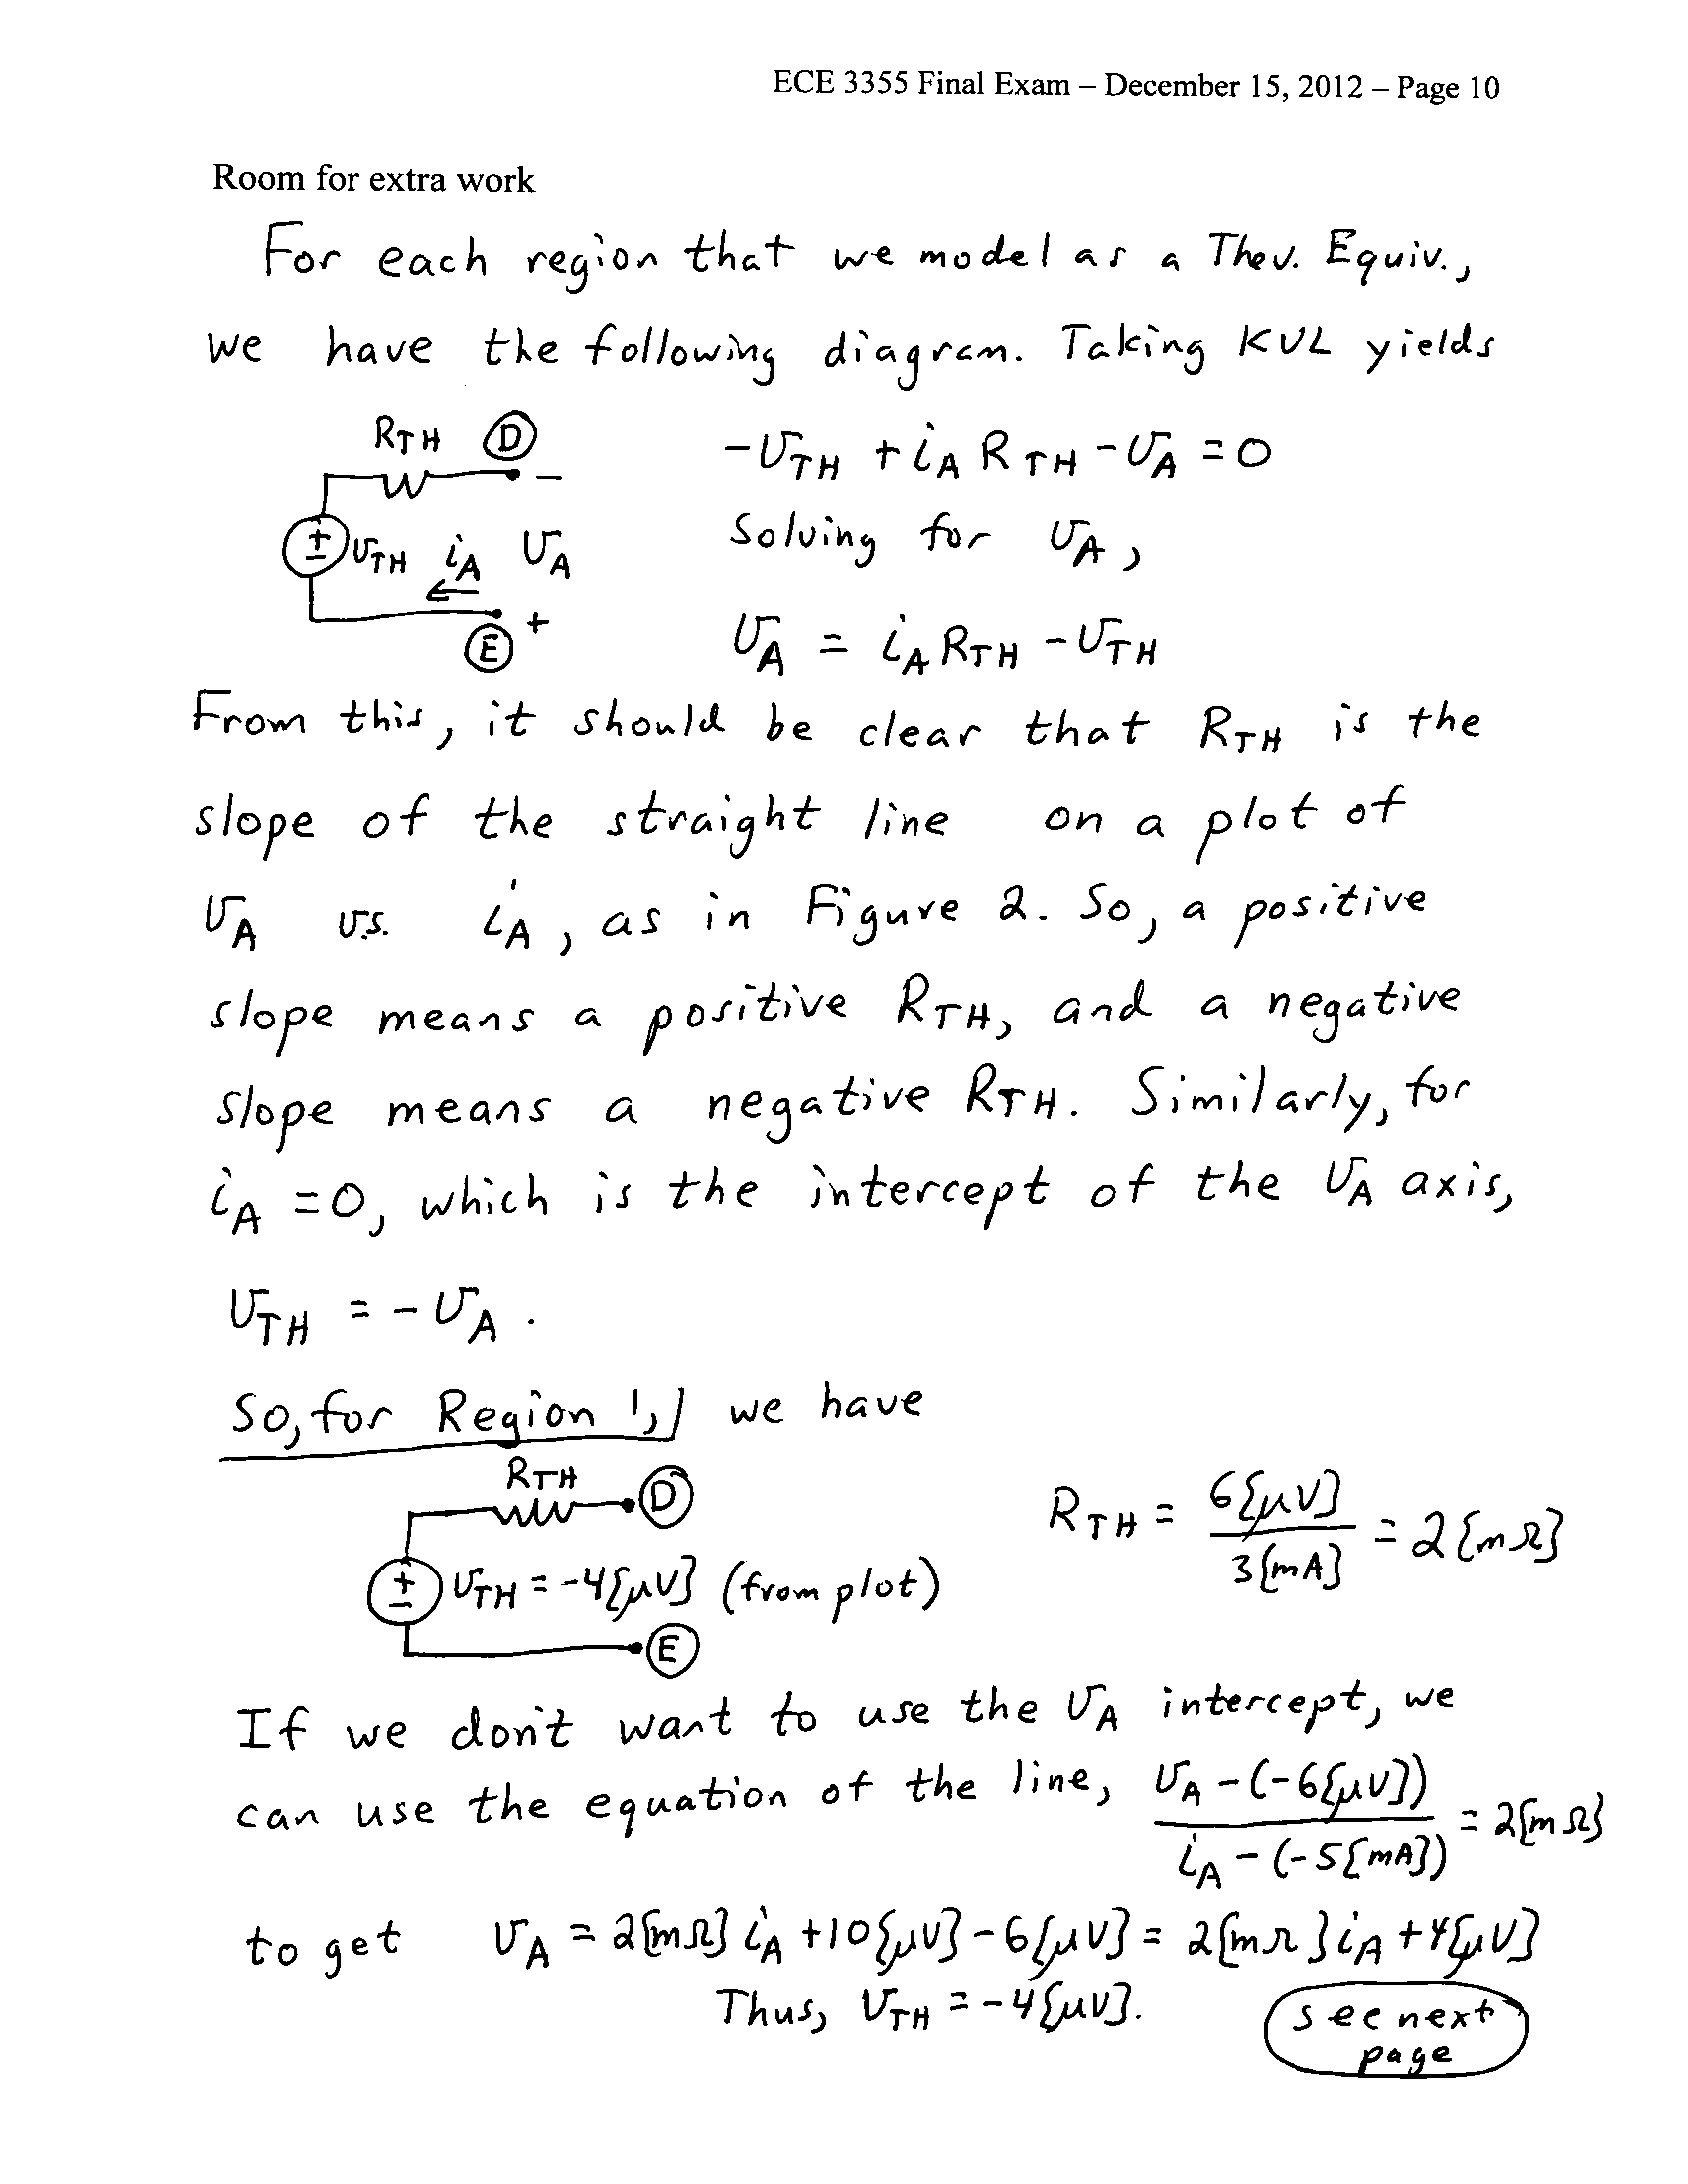 ECE 3355 Final Exam – December 15, 2012 – Page 10
Room for extra work
For each region that we model as a Thev. Equiv.,
we have the following diagram. Taking KVL yields
R_TH D
-
-v_TH + i_A R_TH - v_A = 0
+ - v_TH i_A v_A
Solving for v_A,
+
E
v_A = i_A R_TH - v_TH
From this, it should be clear that R_TH is the
slope of the straight line on a plot of
v_A v.s. i_A, as in Figure 2. So, a positive
slope means a positive R_TH, and a negative
slope means a negative R_TH. Similarly, for
i_A = 0, which is the intercept of the v_A axis,
v_TH = -v_A.
So, for Region 1, we have
R_TH D
R_TH = 6{μV} / 3{mA} = 2{mΩ}
+ - v_TH = -4{μV} (from plot)
E
If we don't want to use the v_A intercept, we
can use the equation of the line, v_A - (-6{μV}) / i_A - (-5{mA}) = 2{mΩ}
to get v_A = 2{mΩ} i_A + 10{μV} - 6{μV} = 2{mΩ} i_A + 4{μV}
Thus, v_TH = -4{μV}.
see next
page